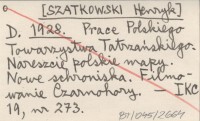 [SZATKOWSKI Henryk]
D. 1928. Prace Polskiego
Towarzystwa Tatrzańskiego.
Nareszcie polskie mapy.
Nowe schroniska. Filmo-
wanie Czarnohory. — IKC
19, nr 273.
B1/045/2664